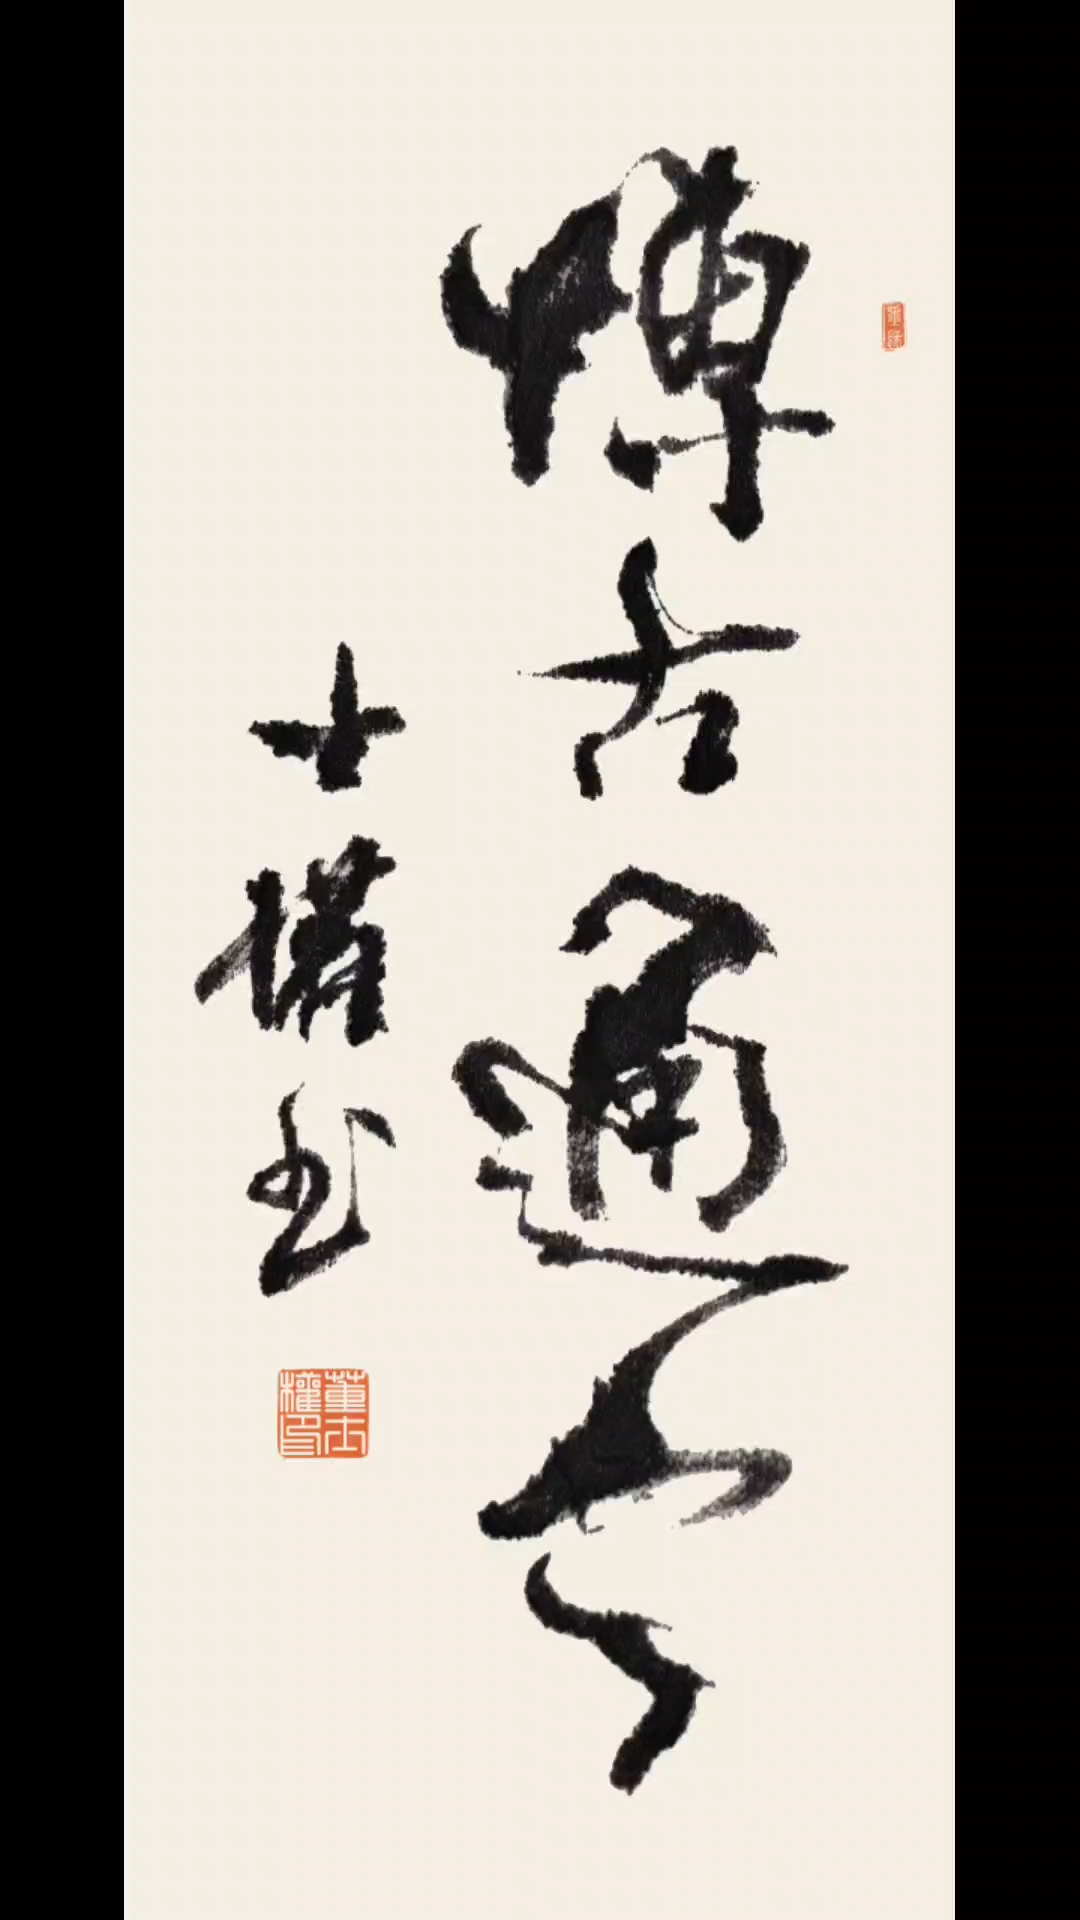 博古通今
士權书
董士權印